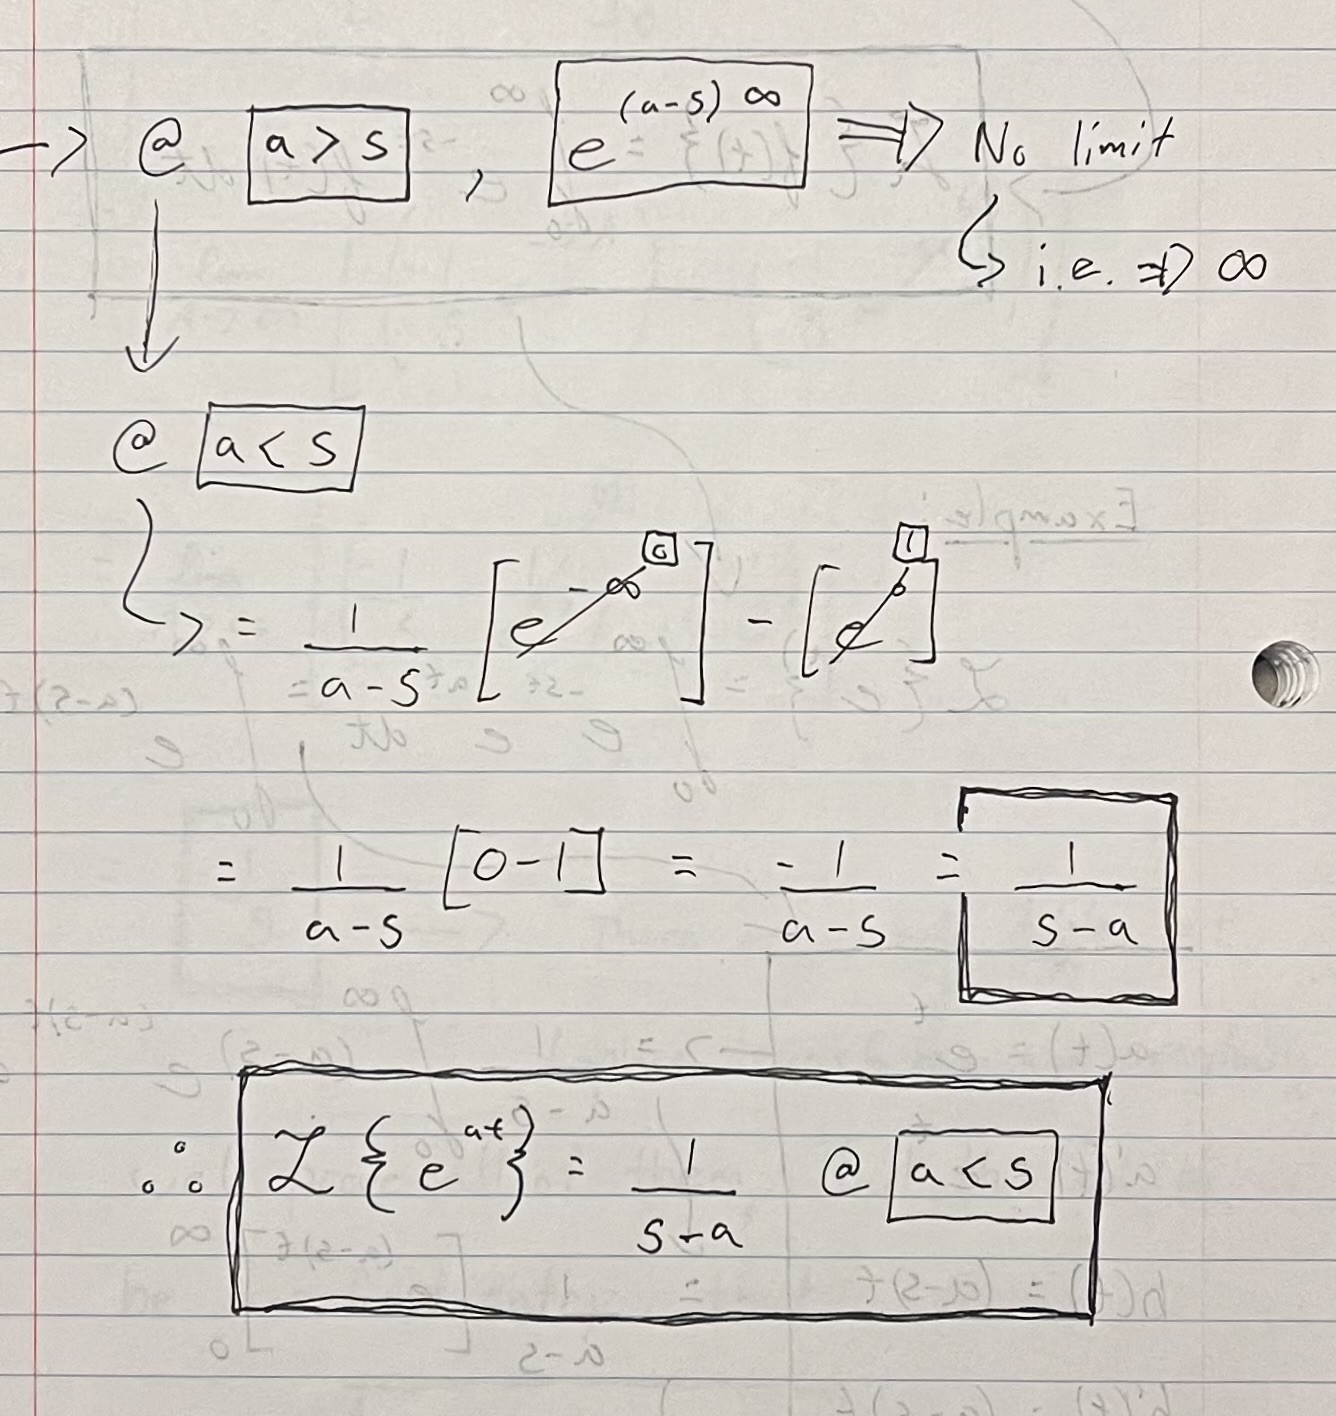 -> @ a > s , e^(a-s)∞ ⇒ No limit
↳ i.e. ⇒ ∞
@ a < s
= 1/(a-s) [e^-∞ 0] - [e^0 1]
= 1/(a-s) [0-1] = -1/(a-s) = 1/(s-a)
∴ ℒ{e^at} = 1/(s-a) @ a < s